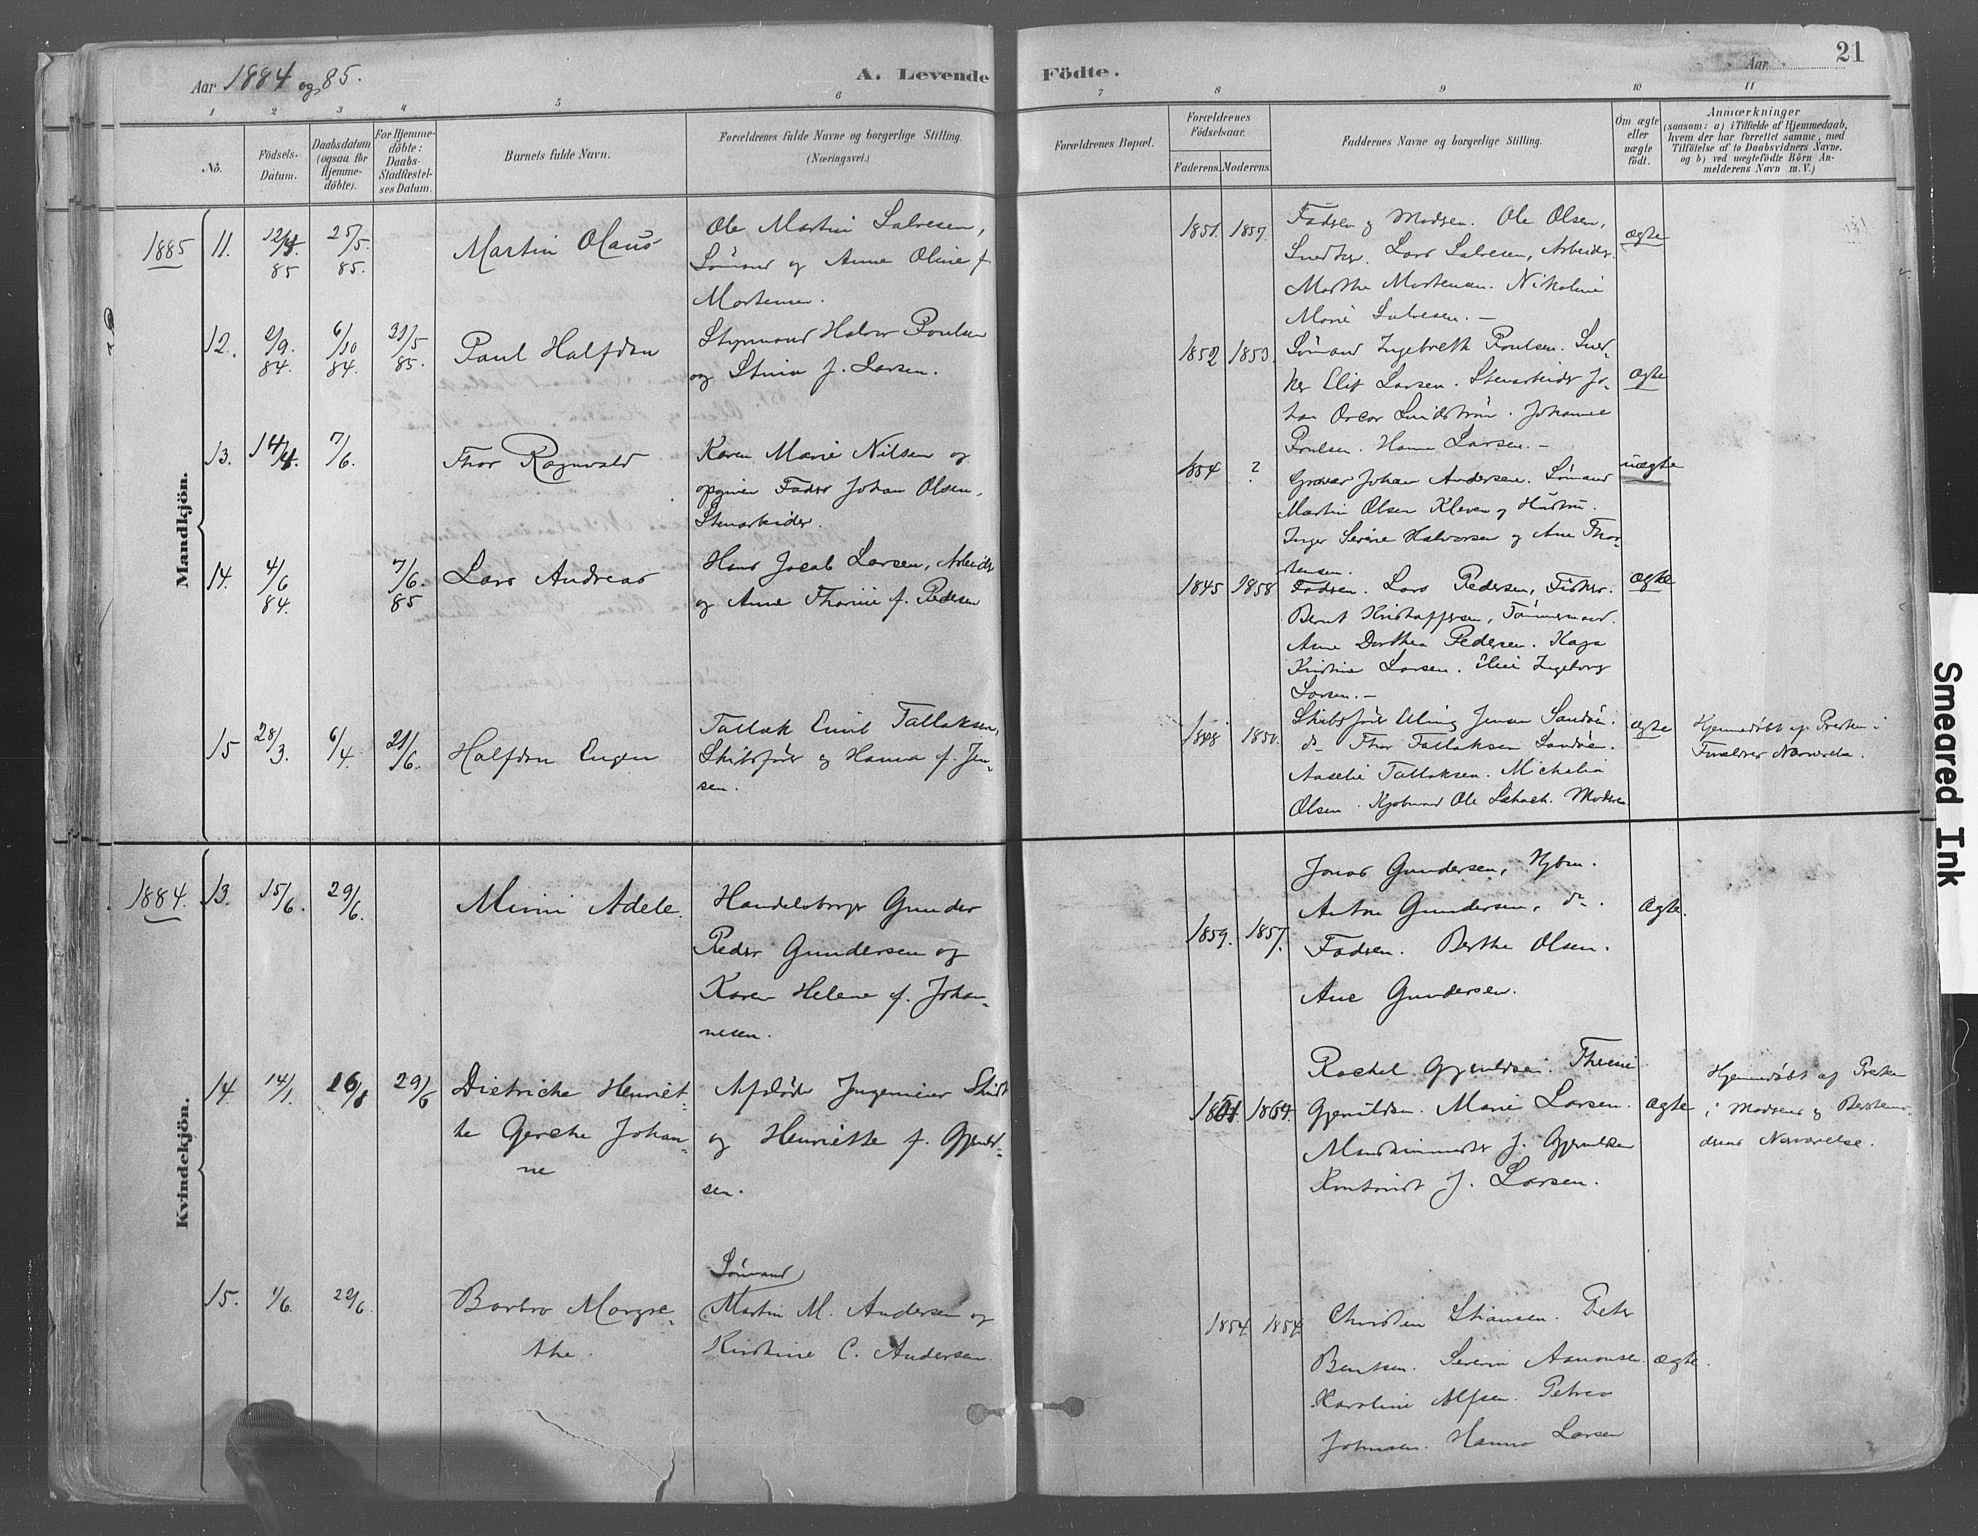 21
Aar 1884 og 85.
A. Levende Fødte.
Aar
1 2 3 4 5 6 7 8 9 10 11
No.
Fødsels-
Datum.
Daabsdatum
(ogsaa for
Hjemme-
døbte).
For Hjemme-
døbte:
Daabs-
Stadfæstel-
ses Datum.
Barnets fulde Navn.
Forældrenes fulde Navne og borgerlige Stilling.
(Næringsvei.)
Forældrenes Bopæl.
Forældrenes
Fødselsaar.
Faderens. Moderens.
Faddernes Navne og borgerlige Stilling.
Om ægte
eller
uægte
født.
Anmærkninger
(saasom: a) i Tilfælde af Hjemmedaab,
hvem der har forrettet samme, med
Tilføielse af to Daabsvidners Navne,
og b) ved uægtefødte Børn An-
melderens Navn m. V.)
Mandkjön.
1885
11. 85 25/5. 85.
Martin Olaus
Ole Martin Salvesen,
Sømand og Anne Oline f.
Mortensen.
1851. 1857.
Fadren og Modren. Ole Olsen,
Snedker. Lars Salvesen, Arbeider.
Marthe Mortensen. Nikoline
Marie Salvesen. –
ægte
12. 2/9. 84. 6/10 84. 31/5 85.
Paul Halfdan
Styrmand Halvor Poulsen
og Stina f. Larsen.
1852 1853.
Sømand Ingebreth Poulsen. Sned-
ker Elif Larsen. Stenarbeider Jo-
han Oscar Lindstrøm. Johanne
Poulsen. Hanna Larsen. –
ægte
13. 14/4. 7/6.
Thor Ragnvald
Karen Marie Nilsen og
opgiven Fader Johan Olsen,
Stenarbeider.
1854 ?
Graver Johan Andersen. Sømand
Martin Olsen Kleven og Hustru.
Inger Serine Halvorsen og Ane Thor-
tensen.
uægte
14. 4/6 84. 7/6. 85
Lars Andreas
Hans Jacob Larsen, Arbeider
og Anne Thorine f. Pedersen
1845 1858
Fadren. Lars Pedersen, Fisker.
Bernt Kristoffersen, Tømmermand.
Anne Dorthea Pedersen. Kaja
Kristine Larsen. Ingeborg
Larsen. –
ægte
15 28/3. 6/4. 21/6.
Halfdan Eugen
Tallak Emil Tallaksen,
Skibsfører og Hanna f. Jen-
sen.
1848 1850.
Skibsfører Elling Jensen Sandøen.
do Thor Tallaksen Sandøen.
Aaselie Tallaksen. Michelia
Olsen. Kjøbmand Ole Modren
ægte
Hjemmedøbt af Presten i
Forældres Nærværelse.
Kvindekjön.
1884.
13. 15/6. 29/6.
Minni Adele.
Handelsborger Gunder
Peder Gundersen og
Karen Helene f. Johan-
nesen.
1859. 1857.
Jonas Gundersen,
Anton Gundersen, do.
Fadren. Berthe Olsen.
Ane Gundersen.
Ægte.
14. 14/1. 16/8 29/6
Dietricke Henriet-
te Gerche Johan-
ne
Afdøde Ingeniør
og Henriette f. Gjeruld-
sen.
1864
Rachel Gjeruldsen. Thrine
Gjeruldsen. Marie Larsen.
Maskinmester J. Gjeruldsen
J. Larsen.
Ægte
Hjemmedøbt af Presten
i Modrens og Bestemo-
drens Nærværelse.
15. 1/6. 22/6.
Barbro Margre-
the.
Sømand
Martin M. Andersen og
Kirstine C. Andersen.
1854. 1854.
Christen Stiansen. Peter
Bentsen. Severin Aanonsen.
Karoline Alfsen. Petrea
Johnsen. Hanna Larsen
ægte.
Smeared Ink